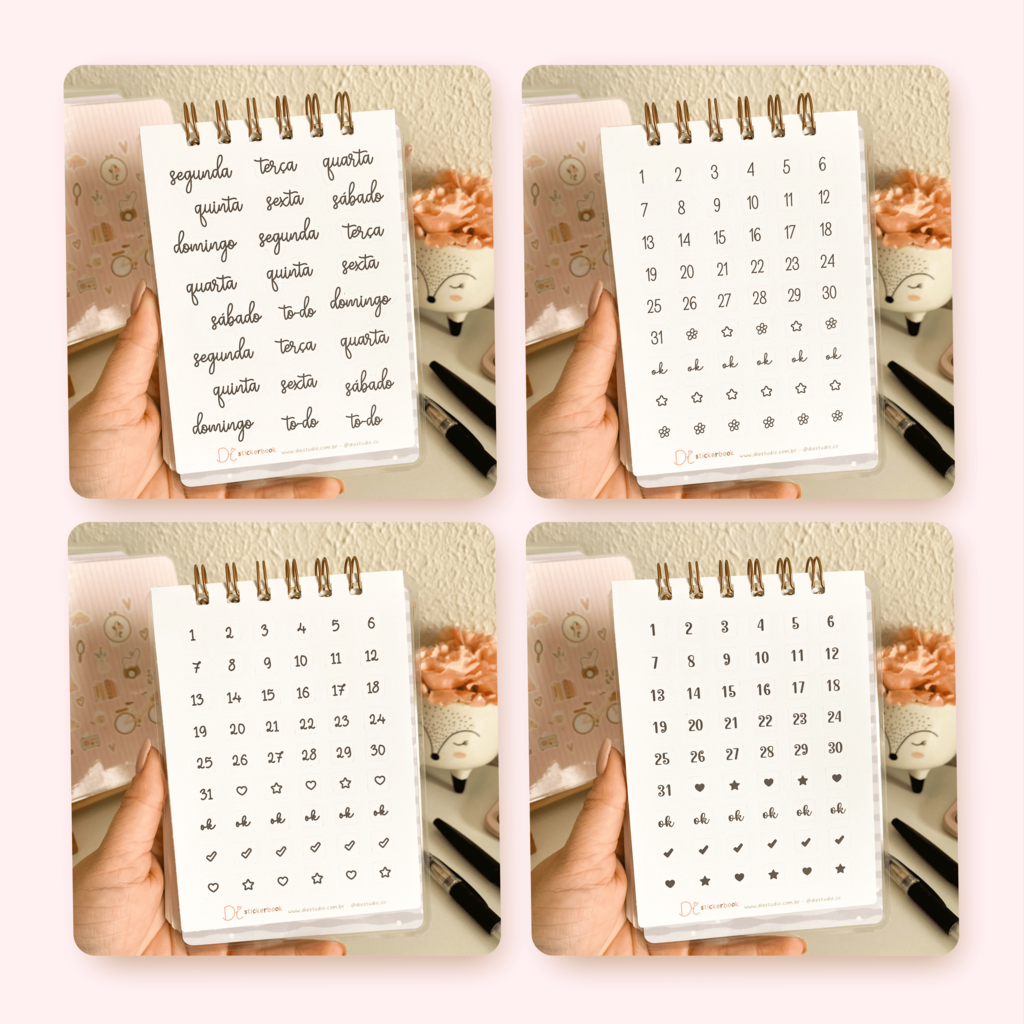 segunda terça quarta
quinta sexta sábado
domingo segunda terça
quarta quinta sexta
sábado to-do domingo
segunda terça quarta
quinta sexta sábado
domingo to-do to-do
DE stickerbook www.diestudio.com.br - @diestudio.cc
1 2 3 4 5 6
7 8 9 10 11 12
13 14 15 16 17 18
19 20 21 22 23 24
25 26 27 28 29 30
31
ok ok ok ok ok ok
DE stickerbook www.diestudio.com.br - @diestudio.cc
1 2 3 4 5 6
7 8 9 10 11 12
13 14 15 16 17 18
19 20 21 22 23 24
25 26 27 28 29 30
31
ok ok ok ok ok ok
DE stickerbook www.diestudio.com.br - @diestudio.cc
1 2 3 4 5 6
7 8 9 10 11 12
13 14 15 16 17 18
19 20 21 22 23 24
25 26 27 28 29 30
31
ok ok ok ok ok ok
DE stickerbook www.diestudio.com.br - @diestudio.cc